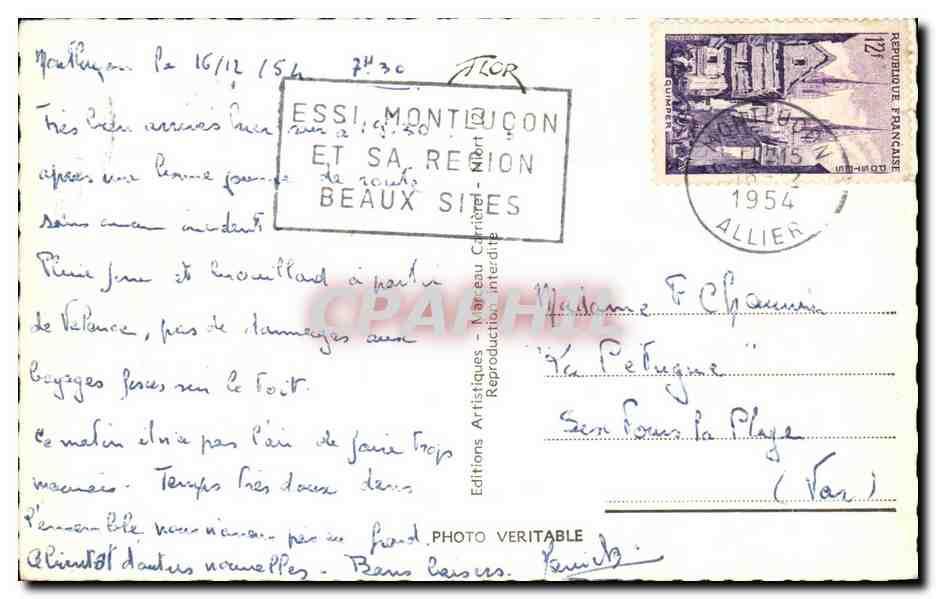 Montluçon le 16/12/54 7H30
FLOR
Très bien arrivés hier soir à 19.30
après une bonne journée de route
sans aucun incident
Pluie fine et brouillard à partir
de Valence, pas de dommages aux
bagages fixés sur le toit.
Ce matin il n'a pas l'air de faire trop
mauvais. Temps très doux dans
l'ensemble nous n'avons pas eu froid.
A bientôt d'autres nouvelles. Bons baisers.
ESSI MONTLUÇON
ET SA REGION
BEAUX SITES
Editions Artistiques - Marceau Carrière - Niort
Reproduction interdite
PHOTO VERITABLE
12f
REPUBLIQUE FRANÇAISE
POSTES
QUIMPER
MONTLUÇON
1954
ALLIER
Madame F
"La Petugue"
Six Fours la Plage
(Var)
CPAPHIL